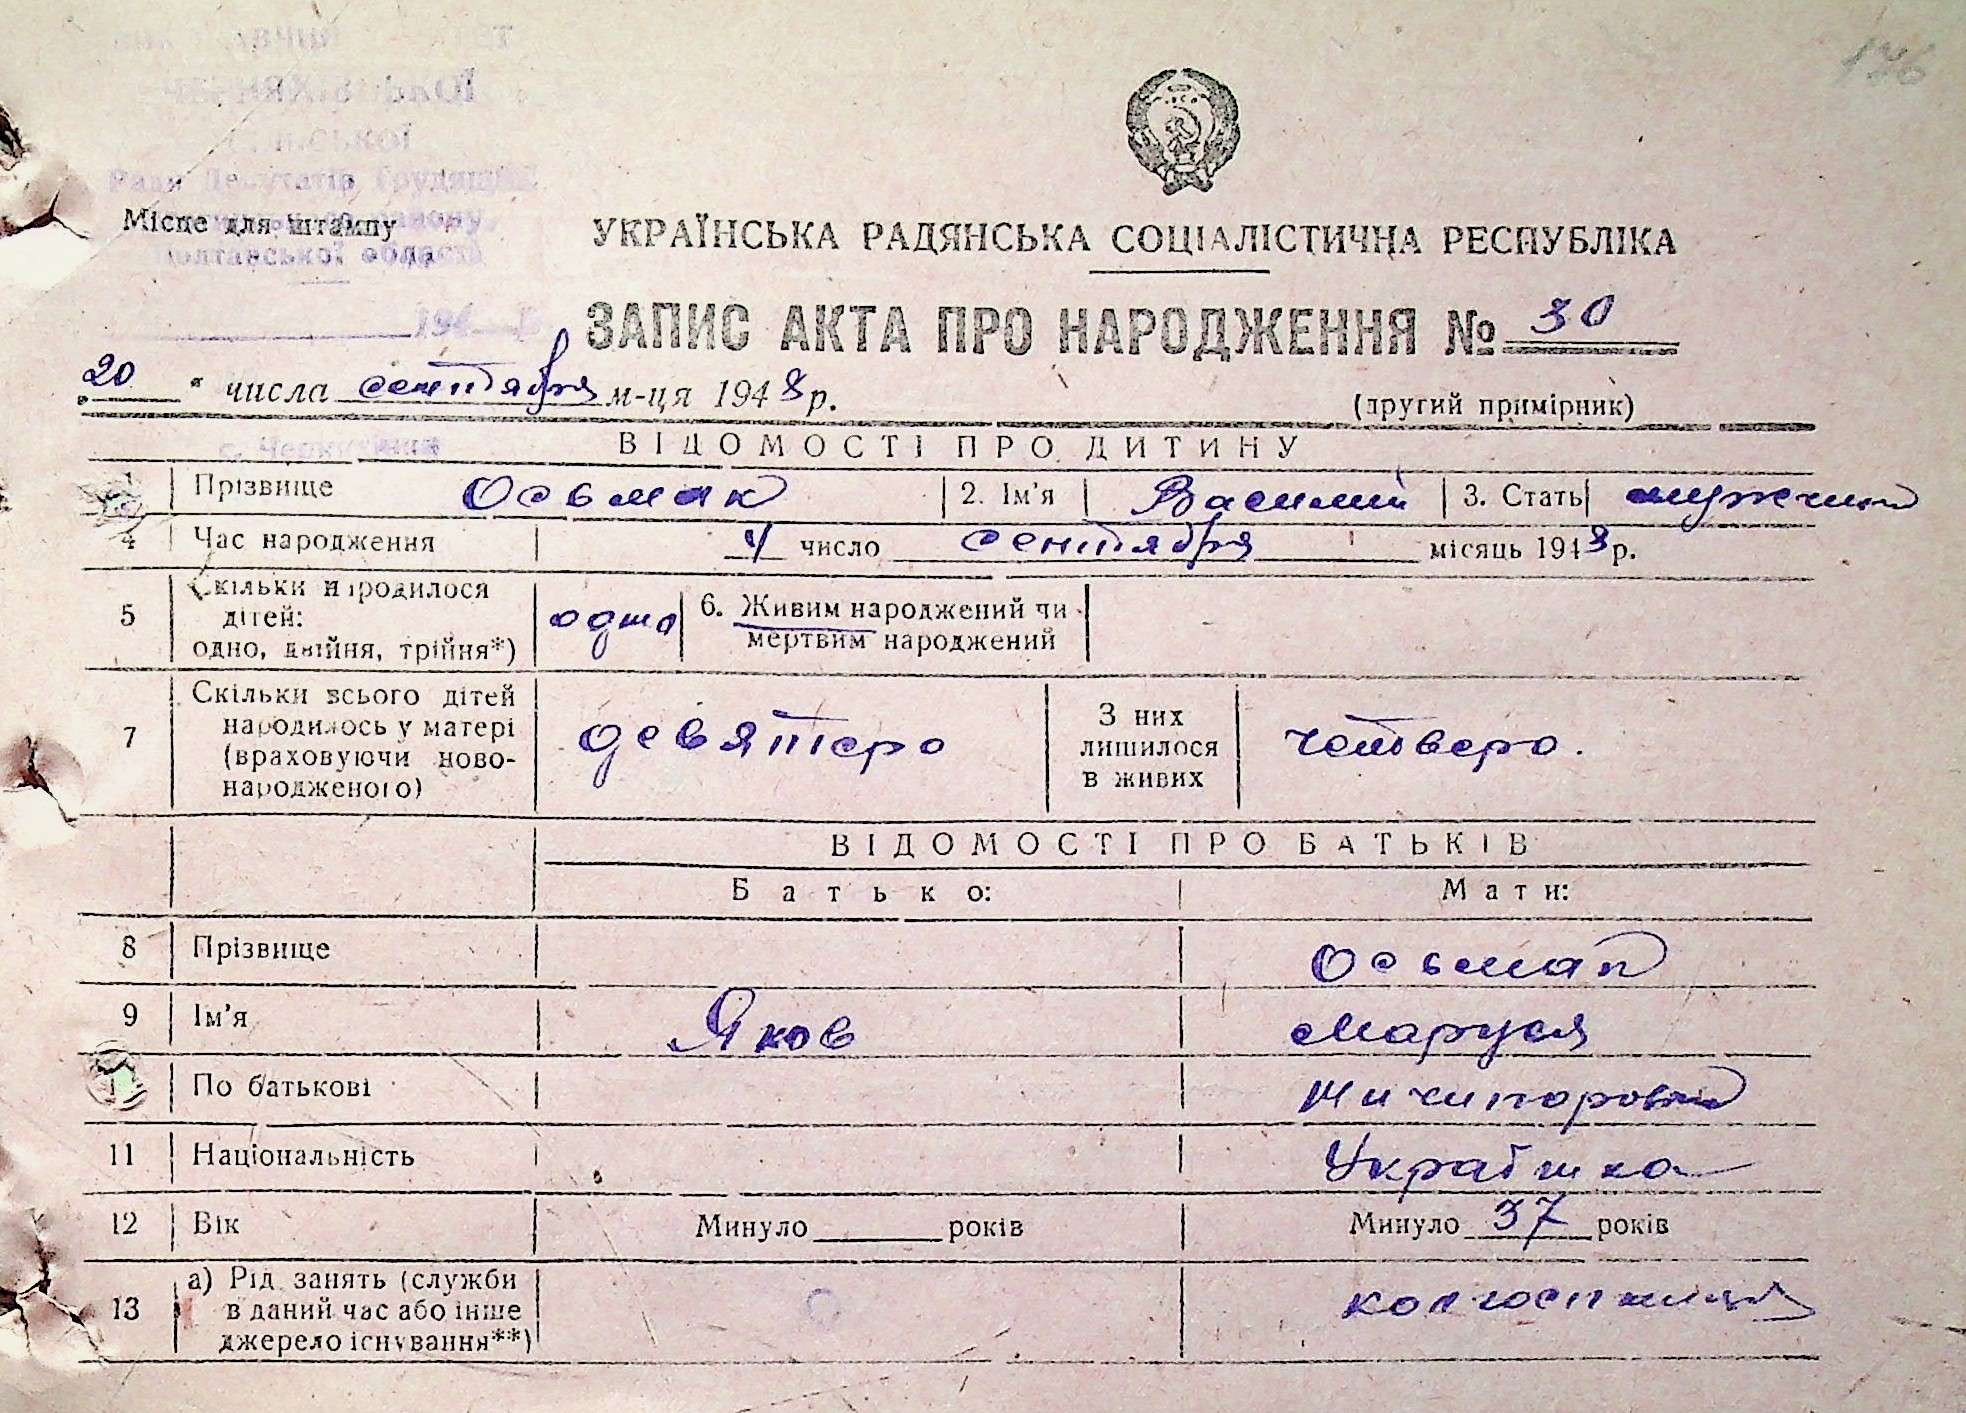 Ради Депутатів Трудящих
Полтавської області
Місце для штампу
УКРАЇНСЬКА РАДЯНСЬКА СОЦІАЛІСТИЧНА РЕСПУБЛІКА
194
ЗАПИС АКТА ПРО НАРОДЖЕННЯ № 30
„20“ числа сентября м-ця 1948 р.
(другий примірник)
ВІДОМОСТІ ПРО ДИТИНУ
Прізвище Осьмак 2. Ім'я Василий 3. Стать
4 Час народження число сентября місяць 1948 р.
5 Скільки народилося дітей: одно, двійня, трійня*) одно 6. Живим народжений чи мертвим народжений
7 Скільки всього дітей народилось у матері (враховуючи новонародженого) девятеро З них лишилося в живих четверо.
ВІДОМОСТІ ПРО БАТЬКІВ
Батько: Мати:
8 Прізвище Осьмак
9 Ім'я Яков Маруся
По батькові Ничипоровна
11 Національність Українка
12 Вік Минуло років Минуло 37 років
13 а) Рід занять (служби в даний час або інше джерело існування**) колгоспниця